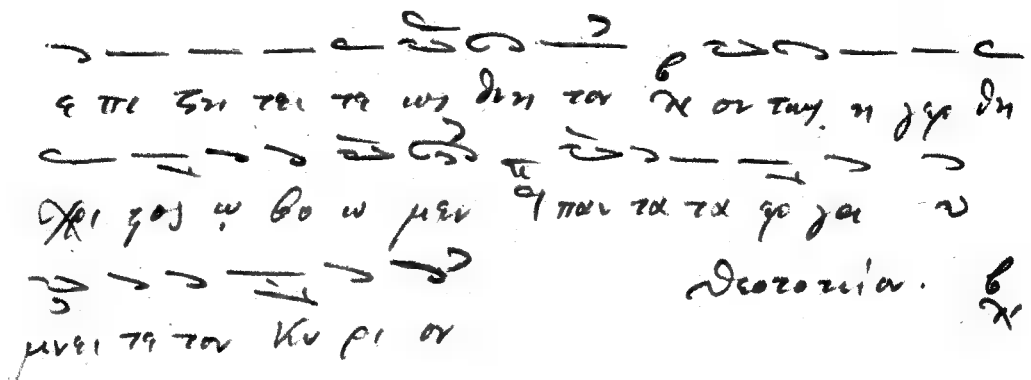 ε πι ζη τει τε ως θνη τον ον τως η γερ θη
Χρι στος ῳ βο ω μεν παν τα τα ερ γα υ
μνει τε τον Κυ ρι ον Θεοτοκίον.